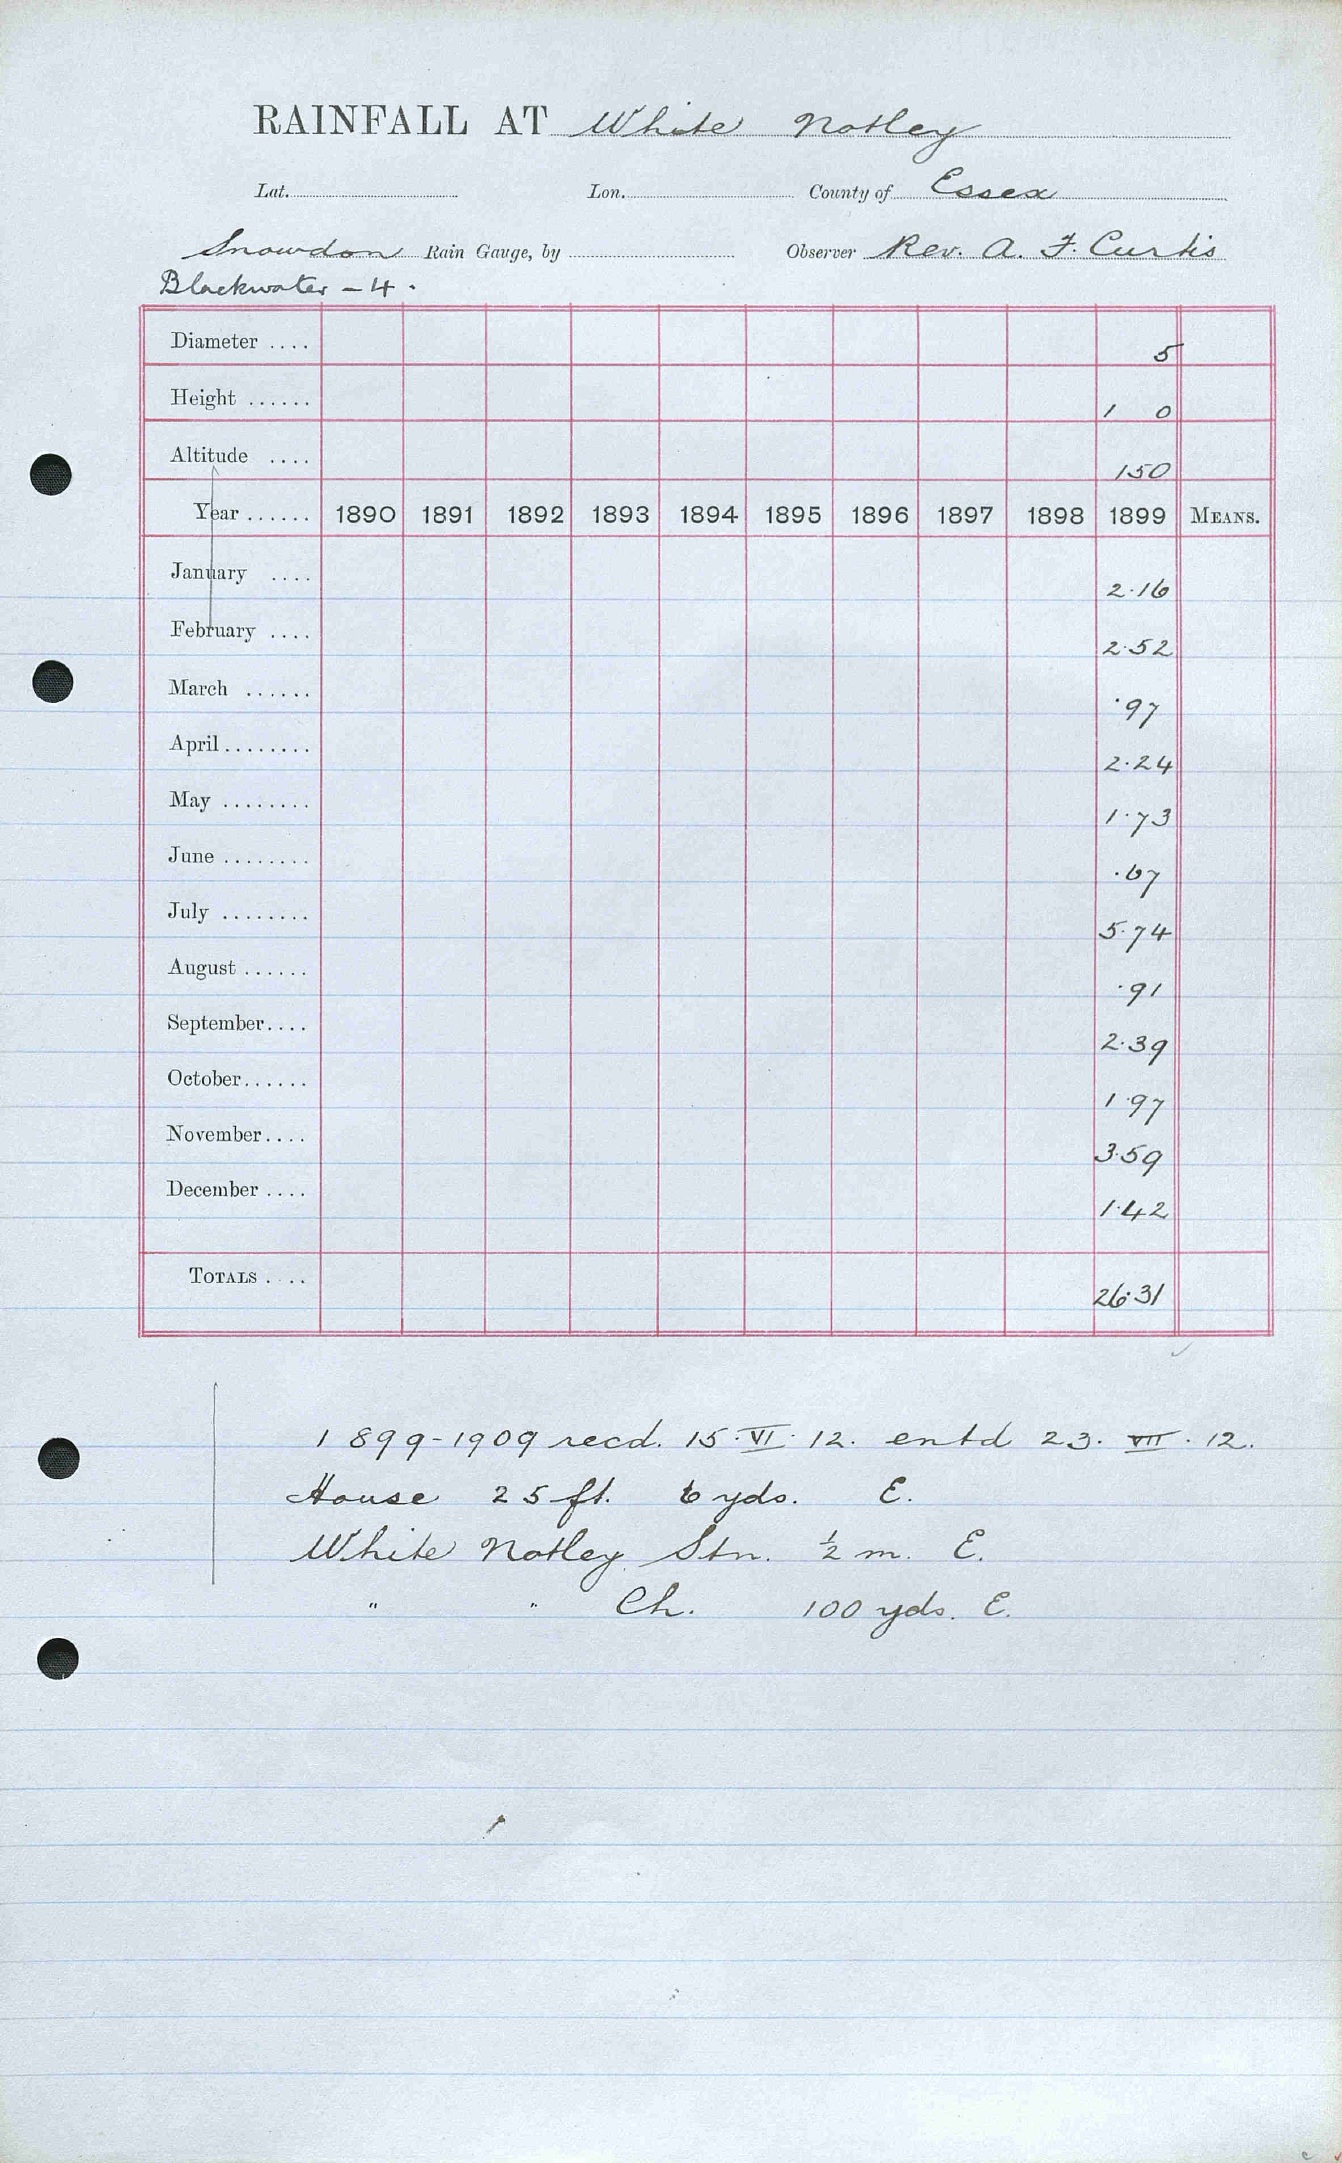 RAINFALL AT White Notley
Lat. Lon. County of Essex
Snowdon Rain Gauge, by Observer Rev. A. F. Curtis
Blackwater - 4.
Diameter .... 5
Height ...... 1 0
Altitude .... 150
Year ...... 1890 1891 1892 1893 1894 1895 1896 1897 1898 1899 MEANS.
January .... 2.16
February .... 2.52
March ...... .97
April ........ 2.24
May ........ 1.73
June ........ .67
July ........ 5.74
August ...... .91
September.... 2.39
October...... 1.97
November.... 3.59
December .... 1.42
TOTALS .... 26.31
1899-1909 recd. 15.VI.12. entd 23.VII.12.
House 25 ft. 6 yds. E.
White Notley Stn. ½ m. E.
" " Ch. 100 yds. E.